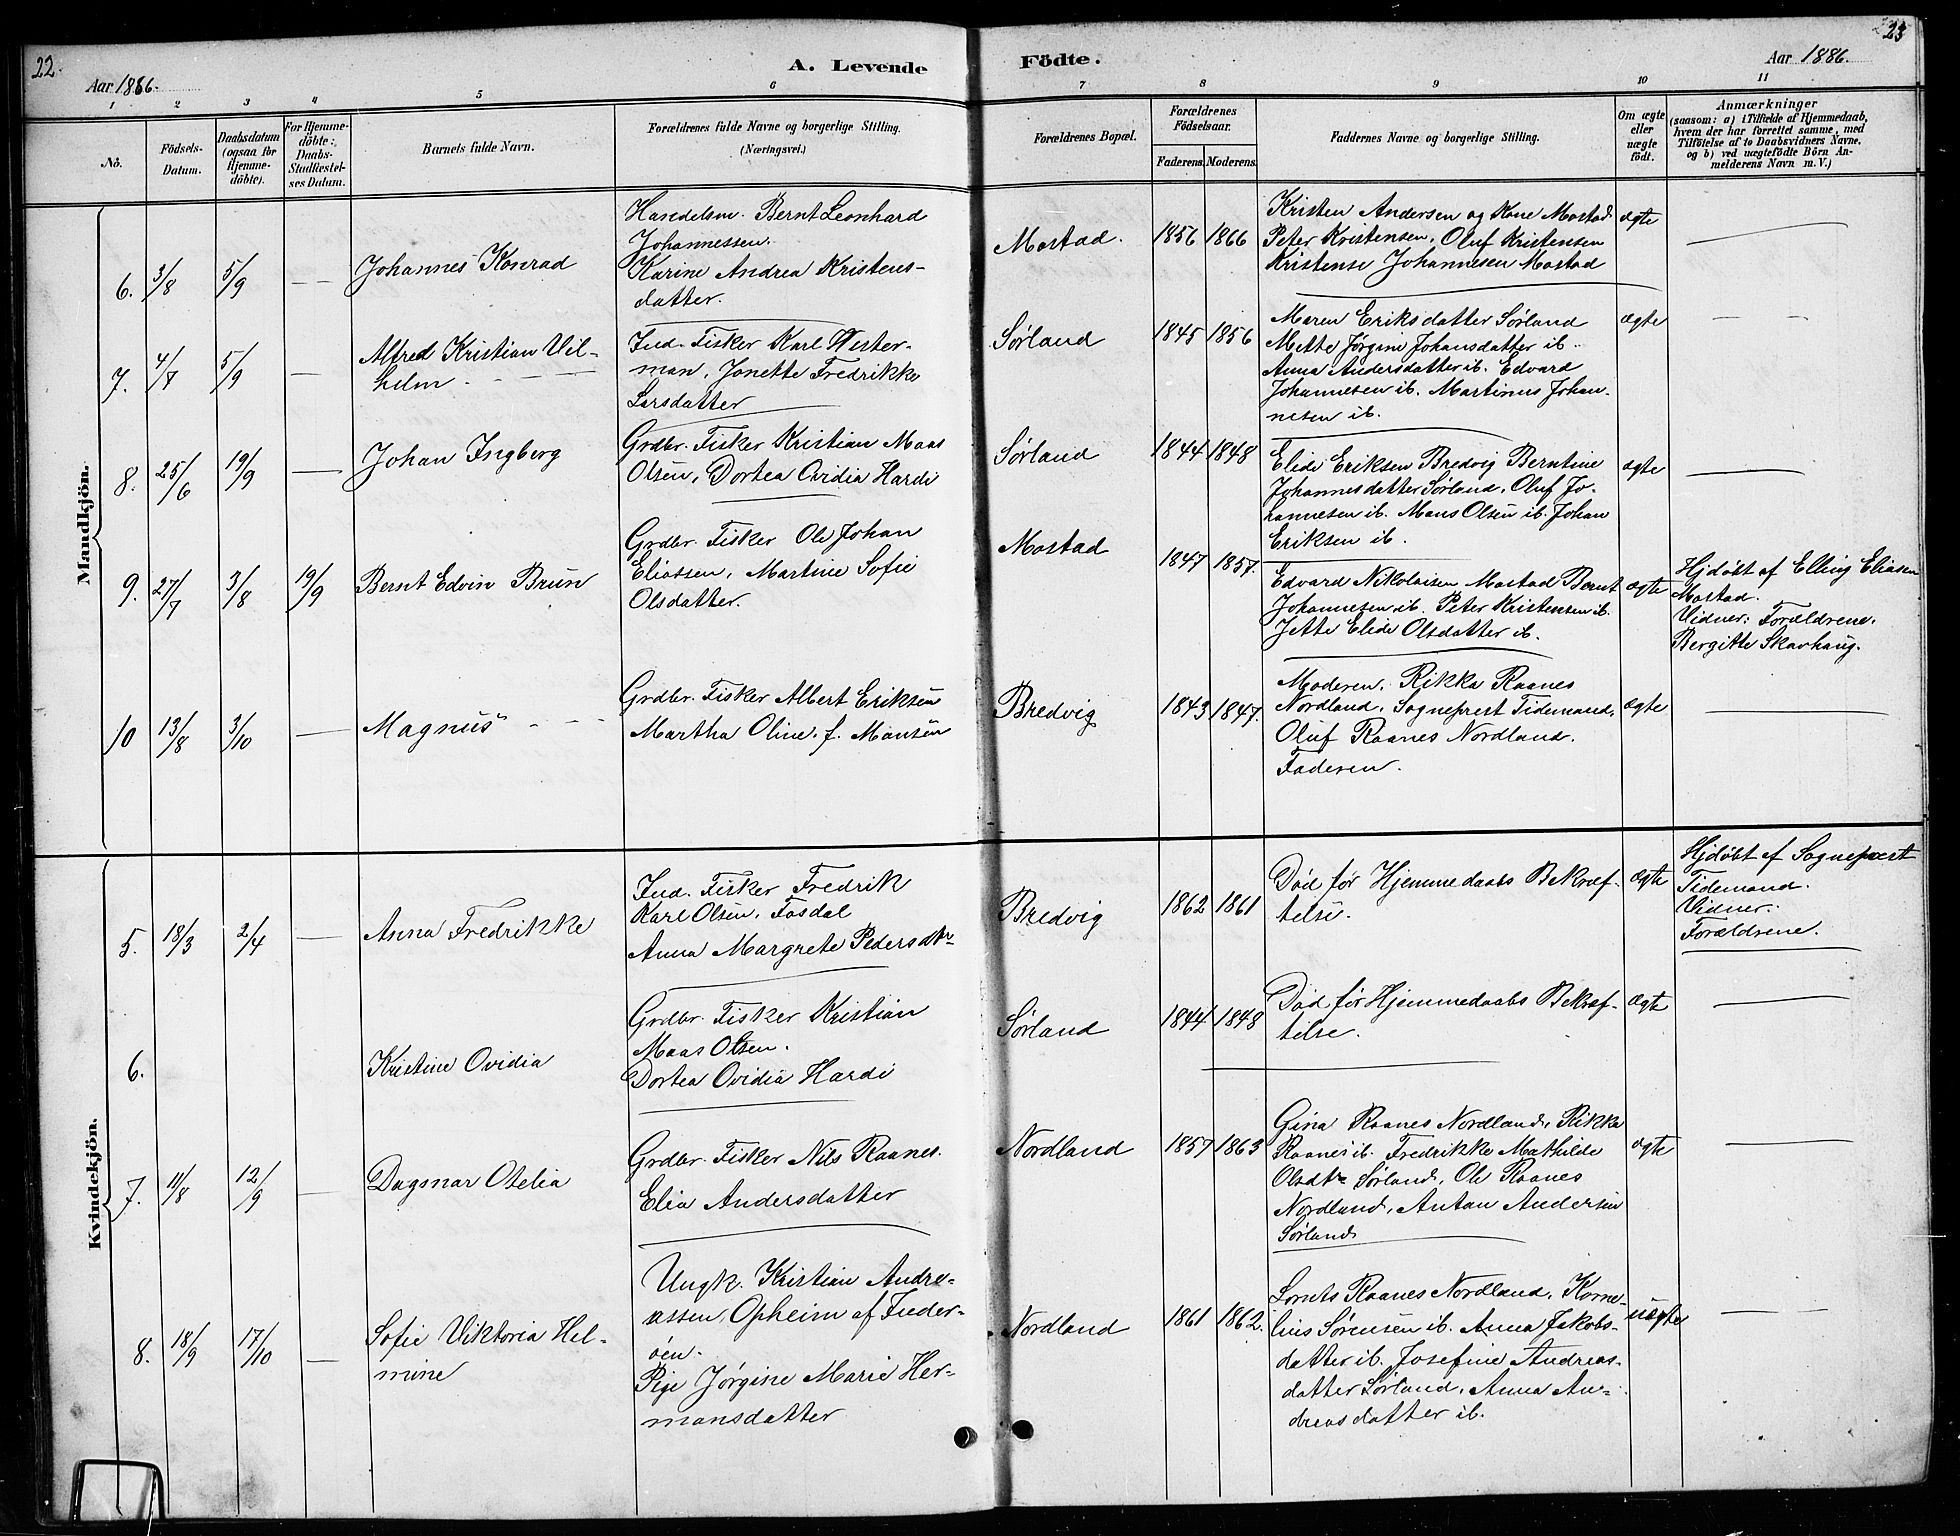 22.
23
A. Levende
Födte.
Aar 1886.
Aar 1886.
1 2 3 4 5 6 7 8 9 10 11
No.
Födsels-
Datum.
Daabsdatum
(ogsaa for
Hjemme-
döbte).
For Hjemme-
döbte:
Daabs-
Stadfæstel-
ses Datum.
Barnets fulde Navn.
Forældrenes fulde Navne og borgerlige Stilling.
(Næringsvei.)
Forældrenes Bopæl.
Forældrenes
Födselsaar.
Faderens. Moderens.
Faddernes Navne og borgerlige Stilling.
Om ægte
eller
uægte
födt.
Anmærkninger
(saasom: a) i Tilfælde af Hjemmedaab,
hvem der har forrettet samme, med
Tilföielse af to Daabsvidners Navne,
og b) ved uægtefödte Börn An-
melderens Navn m. V.)
Mandkjön.
6. 3/8 5/9 —
Johannes Konrad
Handelsm. Bernt Leonhard
Johannessen.
Karine Andrea Kristens-
datter.
Mostad. 1856 1866
Kristen Andersen og Kone Mostad
Peter Kristensen, Oluf Kristensen
Kristense Johannesen Mostad
ægte
7. 4/7 5/9 —
Alfred Kristian Vil-
helm
Ind. Fisker Karl Wester-
man, Jonette Fredrikke
Larsdatter
Sørland 1845 1856
Maren Eriksdatter Sørland
Mette Jørgine Johansdatter ib.
Anna Andersdatter ib. Edvard
Johannesen ib. Martinus Johan-
nesen ib.
ægte
8. 25/6 19/9 —
Johan Ingberg
Grdbr. Fisker Kristian Maas
Olsen, Dortea Ovidia Hardi
Sørland 1844 1848
Elide Eriksen Bredvig Berntine
Johannesdatter Sørland, Oluf Jo-
hannesen ib. Mans Olsen ib. Johan
Eriksen ib.
ægte
9. 27/7 3/8 19/9
Bernt Edvin Brun
Grdbr. Fisker Ole Johan
Eliassen, Martine Sofie
Olsdatter.
Mostad 1847 1857.
Edvard Nikolaisen Mostad Bernt
Johannesen ib. Peter Kristensen ib.
Jette Elide Olsdatter ib.
ægte
Hjdøbt af Elling Eliasen
Mostad.
Vidner: Forældrene.
Bergitte Skavhaug.
10 13/8 3/10 —
Magnus
Grdbr. Fisker Albert Eriksen
Martha Oline f. Monsen
Bredvig 1843 1847.
Moderen. Rikka Raanes
Nordland, Sogneprest Tidemand,
Oluf Raanes Nordland.
Faderen.
ægte
Kvindekjön.
5. 18/3 2/4 —
Anna Fredrikke
Ind. Fisker Fredrik
Karl Olsen, Fosdal
Anna Margrete Pedersdtr
Bredvig 1862 1861
Død før Hjemmedaabs Bekræf-
telse.
ægte
Hjdøbt af Sogneprest
Tidemand.
Vidner:
Forældrene.
6.
Kristine Ovidia
Grdbr. Fisker Kristian
Maas Olsen.
Dortea Ovidia Hardi
Sørland 1844 1848
Død før Hjemmedaabs Bekræf-
telse.
ægte
7. 11/8 12/9 —
Dagmar Otelia
Grdbr. Fisker Nils Raanes.
Elia Andersdatter
Nordland 1857 1863
Gina Raanes Nordland, Rikka
Raanes ib. Fredrikke Mathilde
Olsdtr Sørland, Ole Raanes
Nordland, Antan Andersen
Sørland
ægte
8. 18/9 17/10 —
Sofie Viktoria Hel-
mine
Ungk. Kristian Andre-
assen, Opheim af Inder-
øen.
Pige Jørgine Marie Her-
mansdatter
Nordland 1861 1862.
Lorents Raanes Nordland, Korne-
lius Sørensen ib. Anna Jakobs-
datter ib. Josefine Andreas-
datter Sørland, Anna An-
dreasdatter ib.
uægte